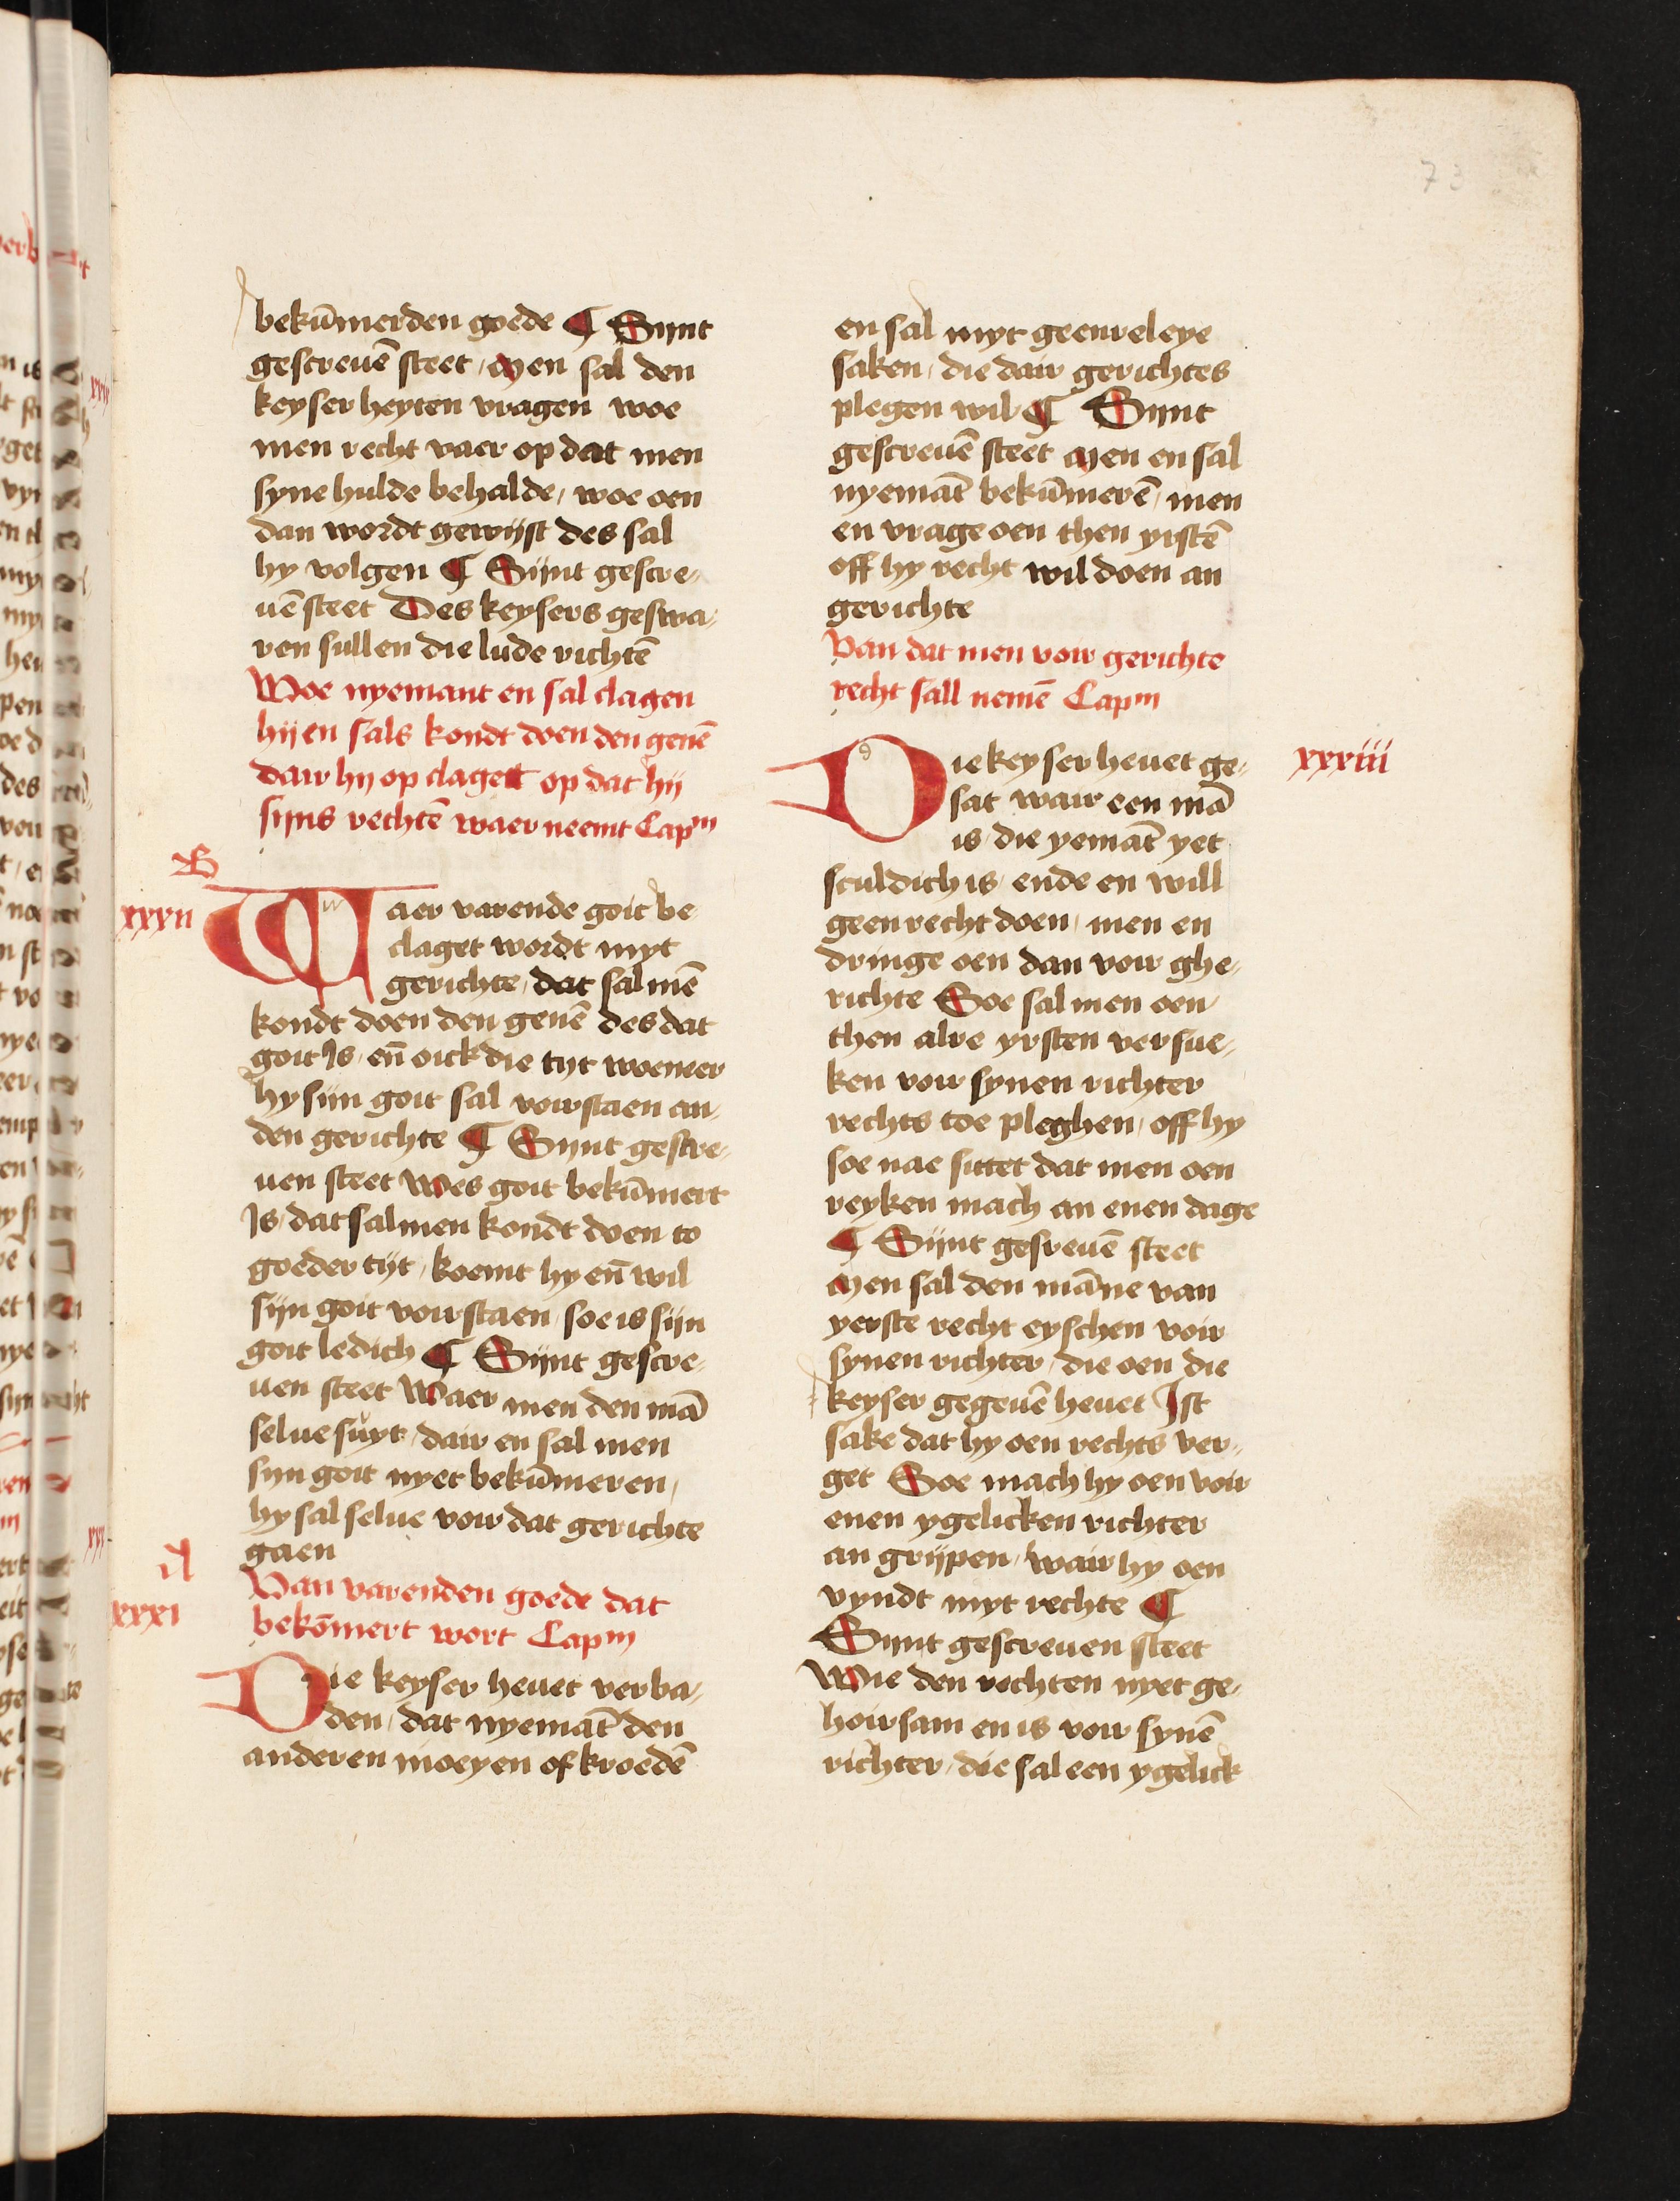 73
bekūmerden goede ¶ Sijnt
gescreuē steet / Men sal den
keyserheyten vragen woe
men recht vaer op dat men
syne hulde behalde / woe oen
dan wordt gewijst des sal
hy volgen ¶ Sijnt gescre-
uē steet Des keysers geswa-
ren sullen die lude richtē
Woe nyemant en sal clagen
hij en sals kondt doen den genē
dair hij op claget op dat hij
sijns rechtē waer neemt Capm
B
xxxii
Waer varende goit be-
claget wordt myt
gerichte / dat sal mē
kondt doen den genē des dat
goit Is / en̄ oick die tijt woeneer
hy sijn goit sal voirstaen an-
den gerichte ¶ Sijnt gescre-
uen steet Wes goit bekūmert
Is / dat sal men kondt doen to
goeder tijt / koemt hy en̄ wil
sijn goit voirstaen / soe is sijn
goit ledich ¶ Sijnt gescre-
uen steet Waer men den mā
selue suyt / dair en sal men
sijn goit nyet bekūmeren /
hy sal selue voir dat gerichte
gaen
A
xxxi
Van varenden goede dat
bekōmert wort Capm
Die keyser heuet verba-
den / dat nyemāt den
anderen moeyen of kroedē
en sal myt geenreleye
saken / die dair gerichtes
plegen wil ¶ Sijnt
gescreuē steet Men en sal
nyemāt bekūmerē / men
en vrage oen then yrstē
off hy recht wil doen an
gerichte
Van dat men voir gerichte
recht sall nemē Capm
xxxiii
Die keyser heuet ge-
sat wair een mā
is / die yemāt yet
sculdich is / ende en will
geen recht doen / men en
dringe oen dan voir ghe-
richte Soe sal men oen
then alre yrsten versue-
ken voir synen richter
rechts toe pleghen / off hy
soe nae sittet dat men oen
reyken mach an enen dage
¶ Sijnt gesreuē steet
Men sal den māne van
yerste recht eyschen voir
synen richter / die oen die
keyser gegeuē heuet Ist
sake dat hy oen rechts ver-
get Soe mach hy oen voir
enen ygelicken richter
an grijpen / wair hy oen
vyndt myt rechte ¶
Sijnt gescreuen steet
Wie den rechten nyet ge-
hoirsam en is voir synē
richter / die sal een ygelick